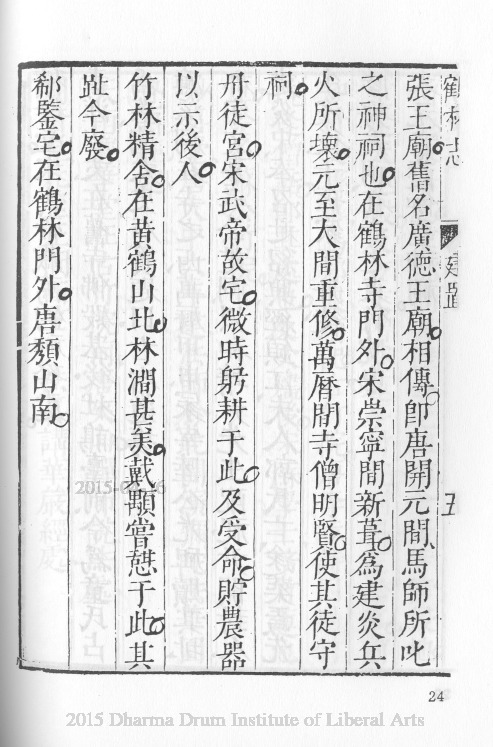 鶴林志 建置 五
張王廟舊名廣德王廟相傳卽唐開元間馬師所叱
之神祠也在鶴林寺門外宋崇寧間新葺爲建炎兵
火所壞元至大間重修萬曆間寺僧明賢使其徒守
祠
丹徒宮宋武帝故宅微時躬耕于此及受命貯農器
以示後人
竹林精舍在黃鶴山北林澗甚美戴顒嘗憇于此其
趾今廢
郗鑒宅在鶴林門外唐頹山南
24
2015 Dharma Drum Institute of Liberal Arts